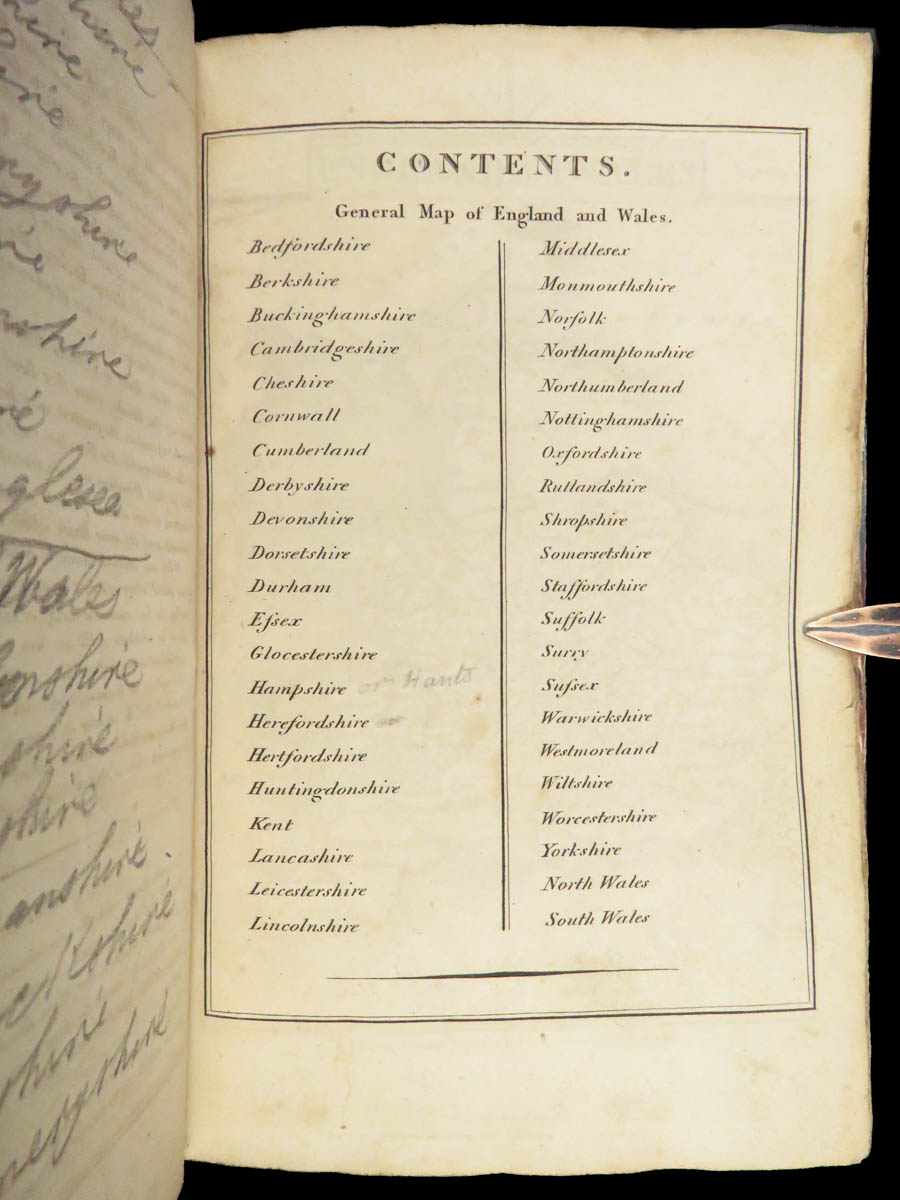 CONTENTS.
General Map of England and Wales.
Bedfordshire
Berkshire
Buckinghamshire
Cambridgeshire
Cheshire
Cornwall
Cumberland
Derbyshire
Devonshire
Dorsetshire
Durham
Eſsex
Glocestershire
Hampshire or Hants
Herefordshire
Hertfordshire
Huntingdonshire
Kent
Lancashire
Leicestershire
Lincolnshire
Middlesex
Monmouthshire
Norfolk
Northamptonshire
Northumberland
Nottinghamshire
Oxfordshire
Rutlandshire
Shropshire
Somersetshire
Staffordshire
Suffolk
Surry
Suſsex
Warwickshire
Westmoreland
Wiltshire
Worcestershire
Yorkshire
North Wales
South Wales
Wales